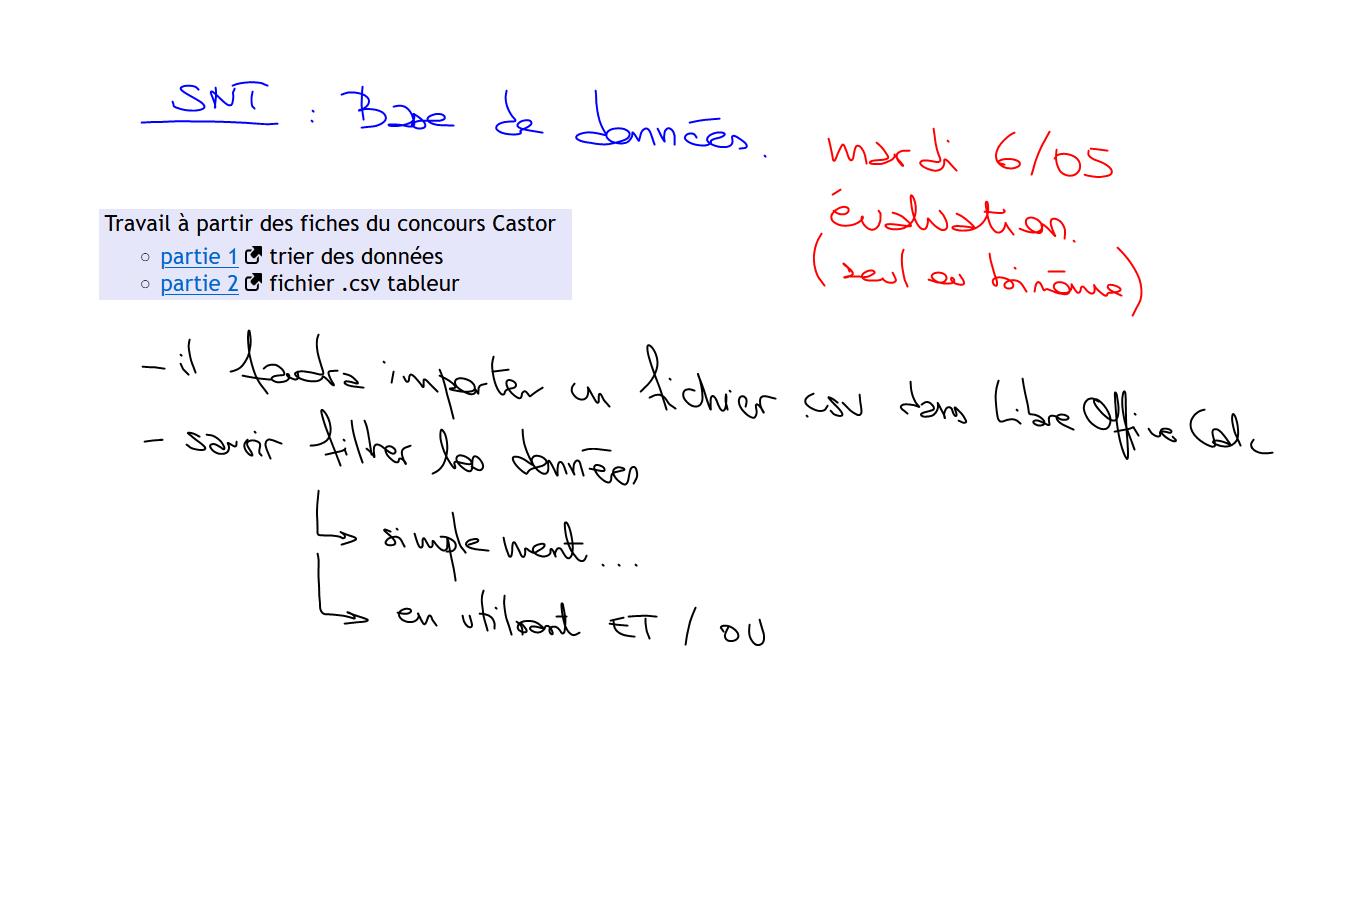 SNT : Base de données.
mardi 6/05
évaluation.
(seul ou binôme)
Travail à partir des fiches du concours Castor
partie 1 trier des données
partie 2 fichier .csv tableur
- il faudra importer un fichier csv dans Libre Office Calc
- savoir filtrer les données
↳ simplement...
↳ en utilisant ET / OU